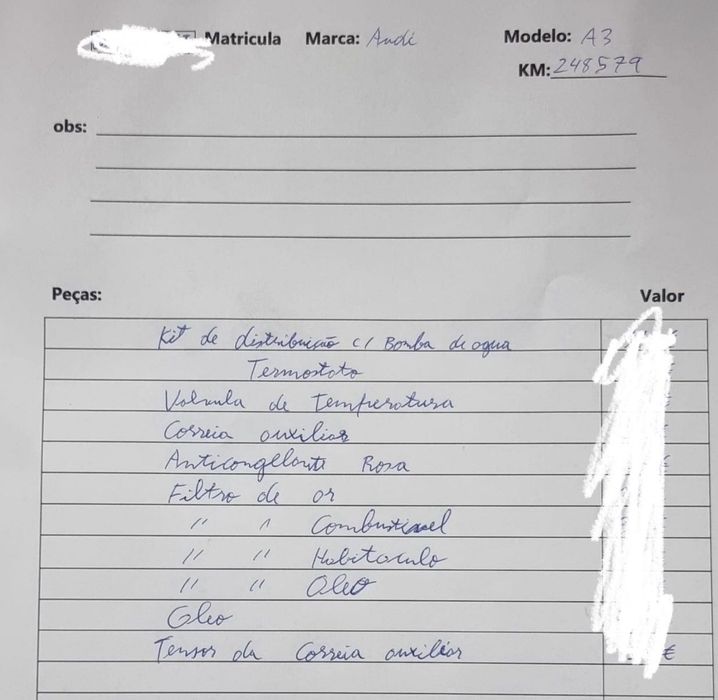 Matricula Marca: Audi Modelo: A3
KM: 248579
obs:
Peças: Valor
Kit de distribuição c/ Bomba de agua
Termostato
Valvula de temperatura
Correia auxiliar
Anticongelante Rosa
Filtro de ar
" " Combustivel
" " Habitaculo
" " Oleo
Oleo
Tensor da Correia auxiliar €